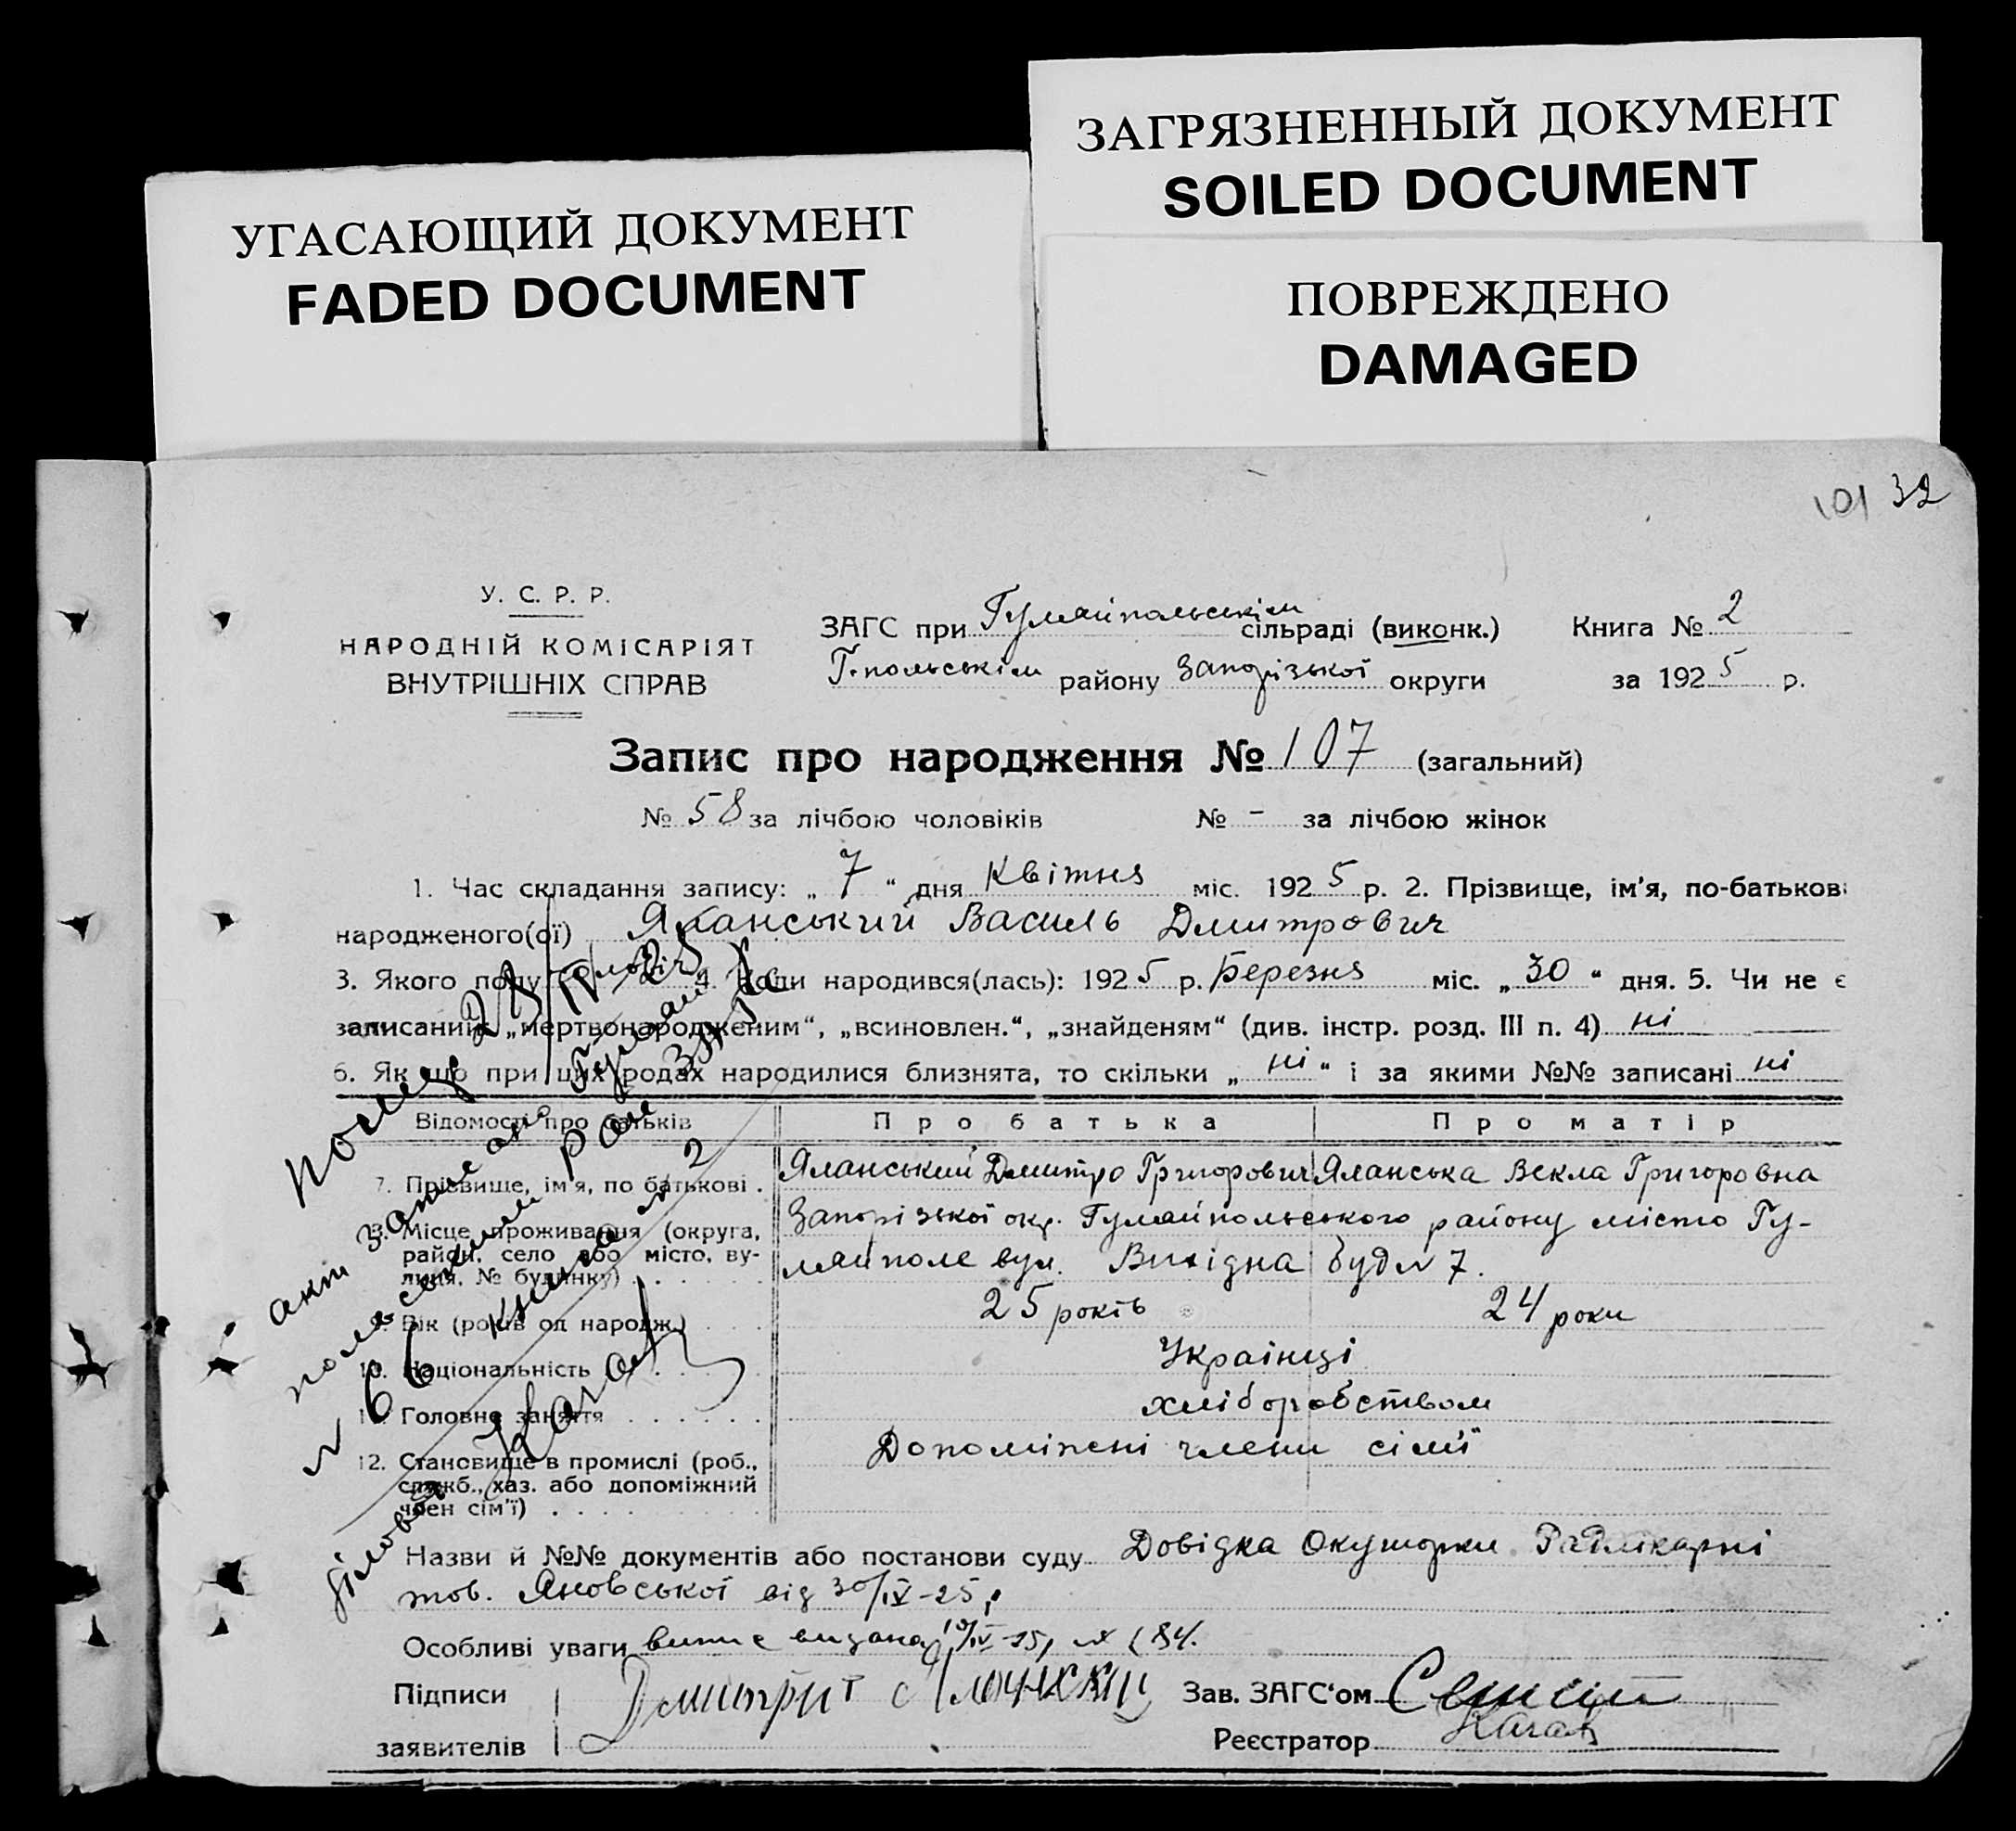 ЗАГРЯЗНЕННЫЙ ДОКУМЕНТ
SOILED DOCUMENT
УГАСАЮЩИЙ ДОКУМЕНТ
FADED DOCUMENT
ПОВРЕЖДЕНО
DAMAGED
101 32
У. С. Р. Р.
НАРОДНІЙ КОМІСАРІЯТ
ВНУТРІШНІХ СПРАВ
ЗАГС при Гуляйпольськім сільраді (виконк.) Книга № 2
Г-польськім району Запорізької округи за 1925 р.
Запис про народження № 107 (загальний)
№ 58 за лічбою чоловіків № - за лічбою жінок
1. Час складання запису: „ 7 “ дня Квітня міс. 1925 р. 2. Прізвище, ім'я, по-батькові
народженого(ої) Яланський Василь Дмитрович
3. Якого полу чоловіч 4. Коли народився(лась): 1925 р. Березня міс. „ 30 “ дня. 5. Чи не є
записаний: „мертвонародженим“, „всиновлен.“, „знайденям“ (див. інстр. розд. III п. 4) ні
6. Як що при цих родах народилися близнята, то скільки „ ні “ і за якими №№ записані ні
Відомості про батьків Про батька Про матір
7. Прізвище, ім'я, по батькові . Яланський Дмитро Григорович Яланська Векла Григоровна
8. Місце проживання (округа, район, село або місто, вулиця, № будинку) . . . Запорізької окр. Гуляйпольського району місто Гу-
ляйполе вул. Вихідна буд № 7.
9. Вік (років од народж.) . . . . 25 років 24 роки
10. Національність . . . . Українці
11. Головне заняття . . . . . . хліборобством
12. Становище в промислі (роб., служб., хаз. або допоміжний член сім'ї) . . . . . Допоміжні члени сім'ї
Назви й №№ документів або постанови суду Довідка Окушорки Райлікарні
тов. Яновської від 30/IV-25 р
Особливі уваги випис видана 10/IV-25р № 184.
Підписи заявителів Дмитрит Яланский Зав. ЗАГС'ом
Реєстратор
акт записано Гуляй
польским Рай ЗАГС
№ 66 книга № 2
діловод